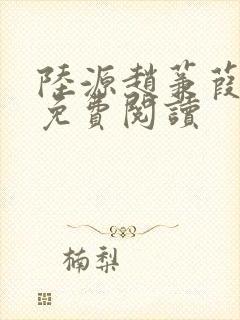 陸源趙蒹葭
免費閱讀
楠梨